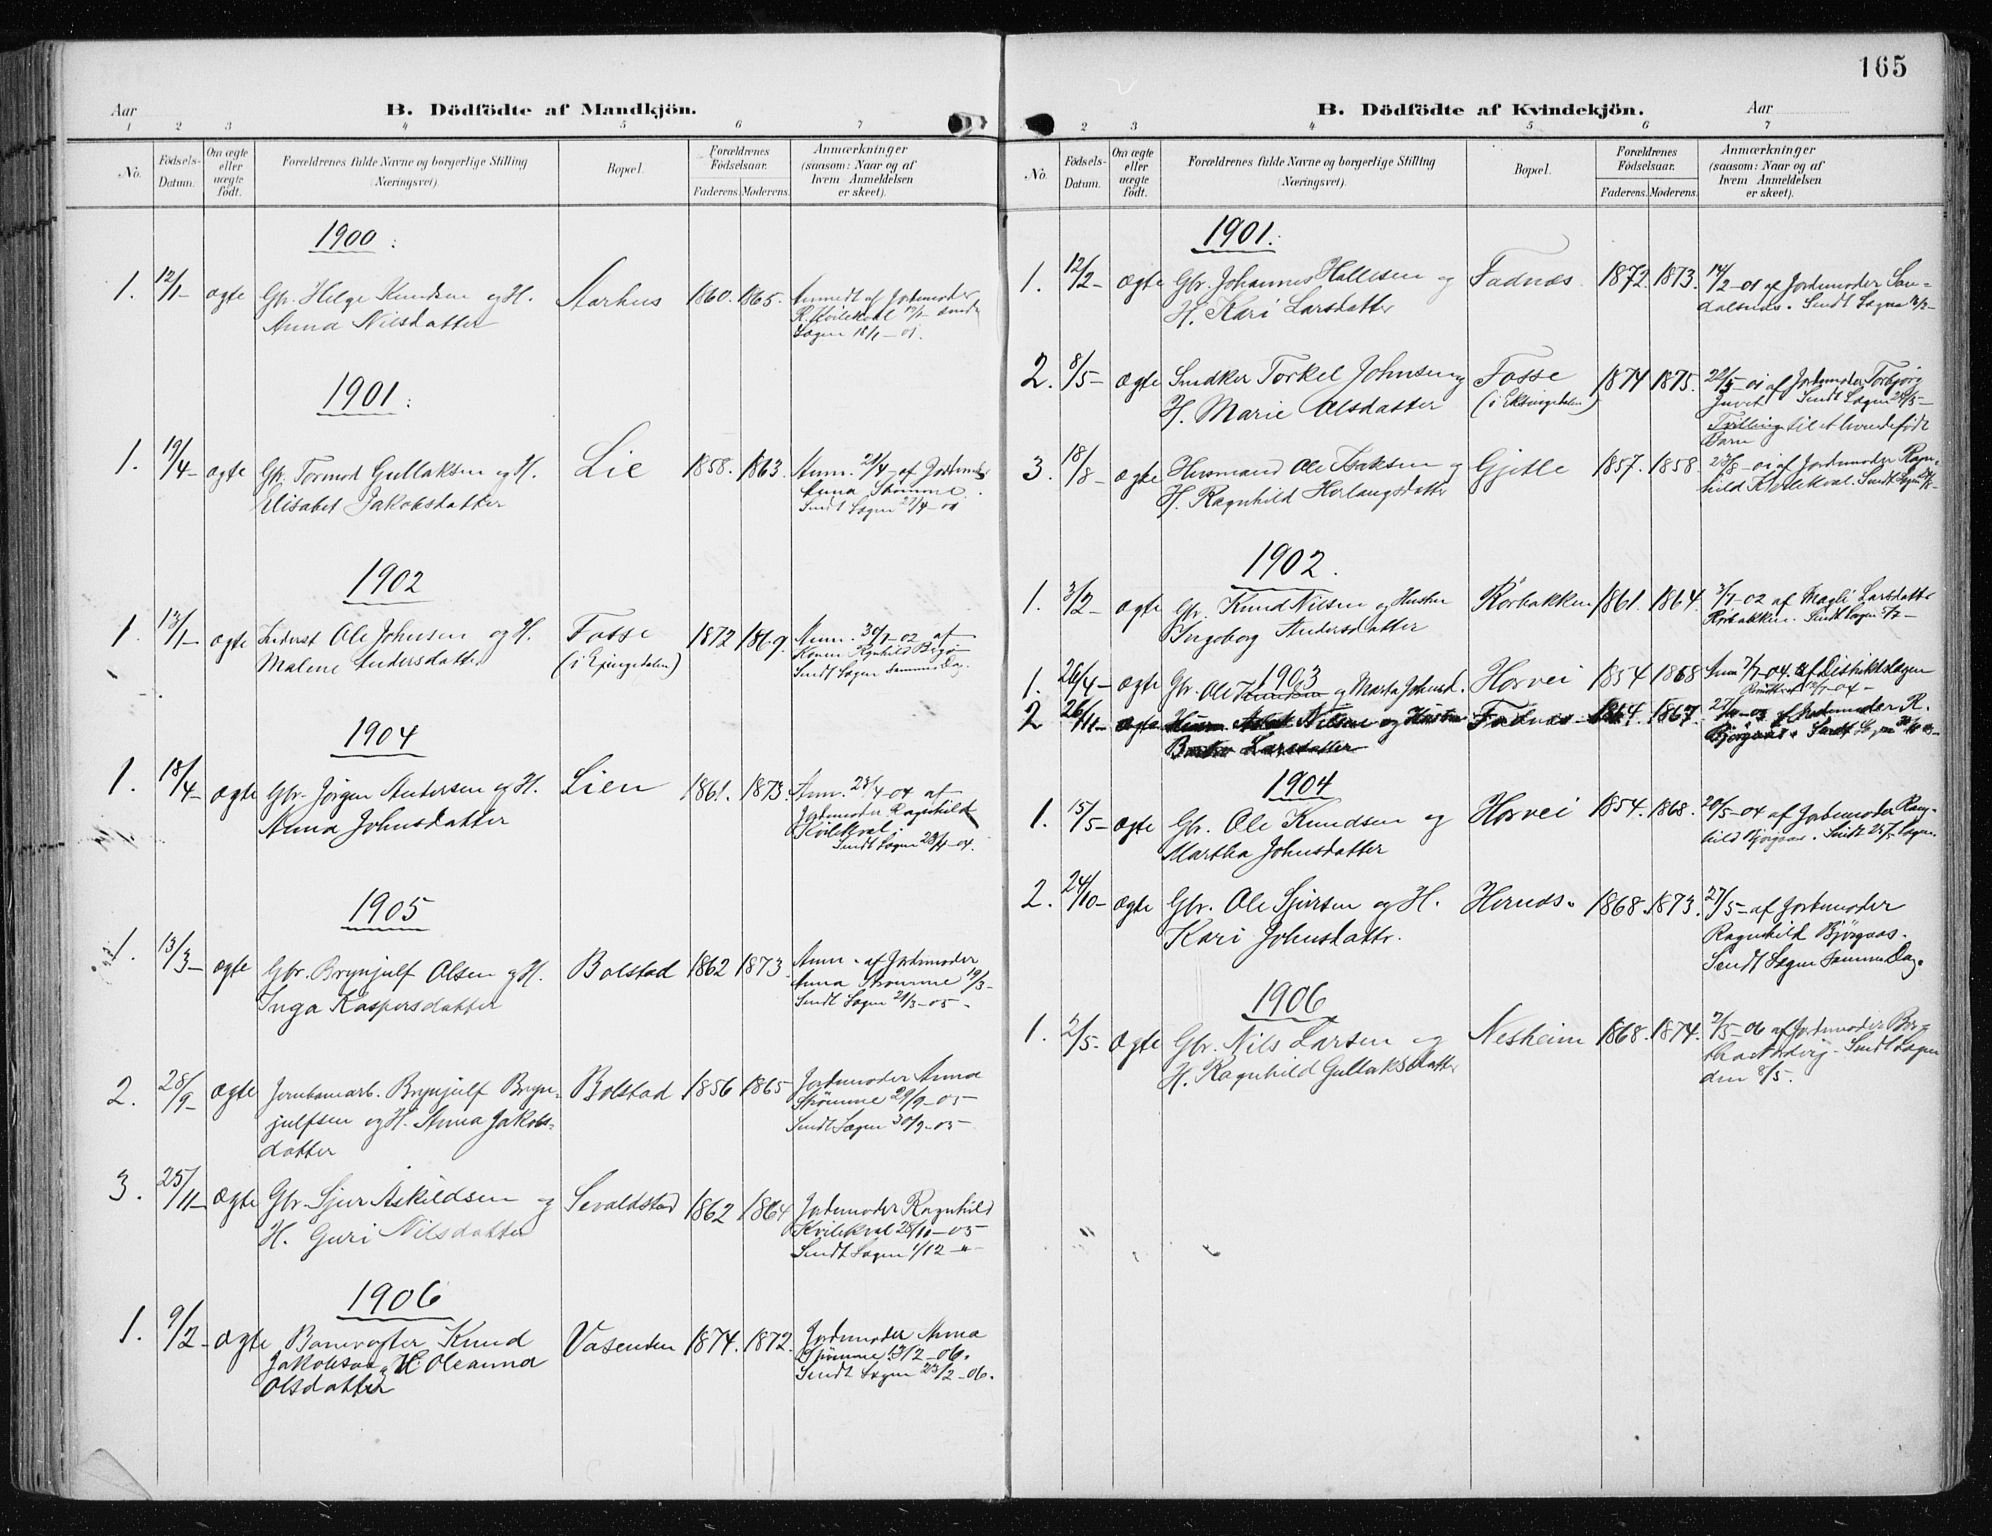 Aar
B. Dödfödte af Mandkjön.
1 2 3 4 5 6 7
No.
Födsels-
Datum.
Om ægte
eller
uægte
födt.
Forældrenes fulde Navne og borgerlige Stilling
(Næringsvei).
Bopæl.
Forældrenes
Födselsaar.
Faderens. Moderens.
Anmærkninger
(saasom: Naar og af
hvem Anmeldelsen
er skeet).
1900.
1. 12/1- ægte Gbr. Helge Knudsen og H. Aarhus 1860. 1865. Anmeldt af Jordemoder
Anna Nilsdatter
Lægen 18/1-01.
1901.
1. 19/4- ægte Gbr. Tormod Gullaksen og H. Lie 1858. 1863. Anm. 21/4- af Jordemoder
Elisabet Jakobsdatter Anna Strømme.
Sendt Lægen 27/4-01
1902
1. 13/1- ægte Inderst Ole Johnsen og H. Fosse 1872 1869. Anm. 30/1-02 af
Malene Andersdatter (i Exingedalen) Konen
Sendt Lægen samme Dag.
1904
1. 18/4- ægte Gbr. Jørgen Andersen og H. Lien 1861. 1873. Anm. 23/4-04 af
Anna Johnsdatter Jordemoder Ragnhild
Kvilekval.
Sendt Lægen 23/4-04.
1905
1. 13/3- ægte Gbr. Brynjulf Olsen og H. Bolstad 1862 1873. Anm. af Jordemoder
Inga Kaspersdatter Anna Strømme 19/3-
Sendt Lægen 21/3-05.
2. 28/9- ægte Jernbanearb. Brynjulf Bryn- Bolstad 1856 1865 Jordemoder Anna
julfsen og H. Anna Jakobs- Strømme 29/9-05
datter Sendt Lægen 30/9-05
3. 25/11- ægte Gbr. Sjur Askildsen og Sevaldstad 1862 1864 Jordemoder Ragnhild
H. Guri Nilsdatter Kvilekval 28/11-05
Sendt Lægen 1/12 -"-
1906
1. 9/2- ægte Banevogter Knud Vasenden 1874. 1872. Jordemoder Anna
Jakobsen H. Oleanna Strømme 13/2-06.
Olsdatter Sendt Lægen 23/2-06.
165
B. Dödfödte af Kvindekjön.
Aar
2 3 4 5 6 7
No.
Födsels-
Datum.
Om ægte
eller
uægte
födt.
Forældrenes fulde Navne og borgerlige Stilling
(Næringsvei).
Bopæl.
Forældrenes
Födselsaar.
Faderens. Moderens.
Anmærkninger
(saasom: Naar og af
hvem Anmeldelsen
er skeet).
1901.
1. 12/2- ægte Gbr. Johannes Hallesen og Fadnæs 1872. 1873. 14/2-01 af Jordemoder San-
H. Kari Larsdatter dalsnæs. Sendt Lægen
2. 8/5- ægte Snedker Torkel Johnsen og Fosse 1874 1875. 22/5-01 af Jordemoder Torbjørg
H. Marie Olsdatter (i Eksingedalen) Sendt Lægen 28/5-
Tvilling til et levendefødt
Barn
3. 18/8- ægte Husmand Ole Isaksen og Gjelle 1857. 1858. 23/8-01 af Jordemoder Ragn-
H. Ragnhild Herlaugsdatter hild Kvilekval. Sendt Lægen
1902.
1. 3/2- ægte Gbr. Knud Nilsen og Hustru Rørbakken 1861. 1864. 3/7-02 af Magli Larsdatter
Ingeborg Andersdatter Rørbakken. Sendt Lægen
1903
1. 26/4- ægte Gbr. Ole Knudsen og Marta Johnsd. Horvei 1854 1868 Anm 7/7-04. af Distriktslægen
2 26/11- ægte Nilsen og Hustru Fadnæs 1864. 1867. Jordemoder R.
Larsdatter Bjørgaas. Sendt
1904
1. 15/5- ægte Gbr. Ole Knudsen og Horvei 1854. 1868. 20/5-04 af Jordemoder Rang-
Martha Johnsdatter hild Bjørgaas. Sendt 25/5 Lægen.
2. 24/10- ægte Gbr. Ole Sjursen og H. Hernæs. 1868. 1873. 27/5- af Jordemoder
Kari Johnsdattr. Ragnhild Bjørgaas.
Sendt Lægen samme Dag.
1906
1. 2/5- ægte Gbr. Nils Larsen og Nesheim 1868. 1874. 7/5-06 af Jordemoder Ber-
H. Ragnhild Gullaksdatter tha Nordvig. Sendt Lægen
den 8/5.